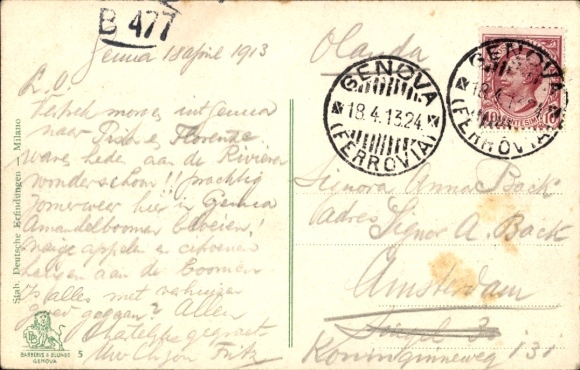 B 477
Genua 18 april 1913
L. O.
Vertrek morgen uit Genua
naar Pisa en Florence
waren heden aan de Riviera
wonderschoon!! prachtig
zomerweer hier in Genua
Amandelboomen bloeien!
appelen en citroenen
aan de boomen
Is alles met verhuizen
gegaan? Allen
hartelijk gegroet
Uw Fritz
Olanda
GENOVA
18.4.13.24
(FERROVIA)
GENOVA
18.4.13.24
(FERROVIA)
Signora Anna Back
adres Signor A. Back
Amsterdam
Singel
Koninginneweg 131
Stab. Deutsche Erfindungen — Milano
BARBERIS & GENOVA
5